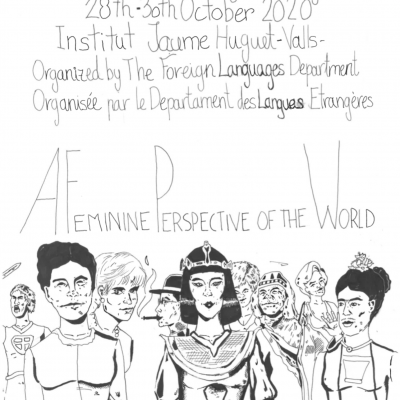 28th-30th October 2020
Institut Jaume Huguet-Valls-
Organized by The Foreign Languages Department
Organisée par le Departament des Langues Etrangères
A FEMININE PERSPECTIVE OF THE WORLD